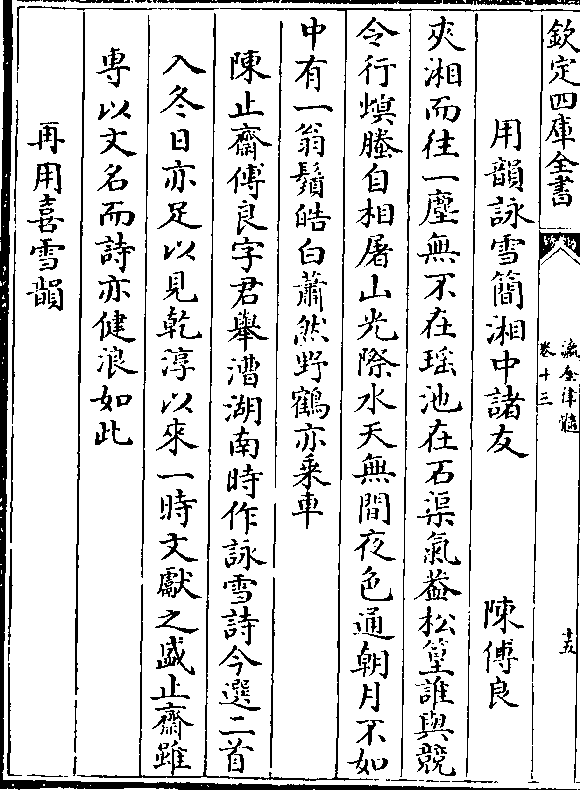 欽定四庫全書
瀛奎律髓
卷十三
十五
用韻詠雪簡湘中諸友
陳傅良
夾湘而往一塵無不在瑶池在石渠氣葢松篁誰與競
令行螟螣自相屠山光際水天無間夜色通朝月不如
中有一翁鬚皓白蕭然野鶴亦乘車
陳止齋傅良字君舉漕湖南時作詠雪詩今選二首
入冬日亦足以見乾淳以來一時文獻之盛止齋雖
専以文名而詩亦健浪如此
再用喜雪韻